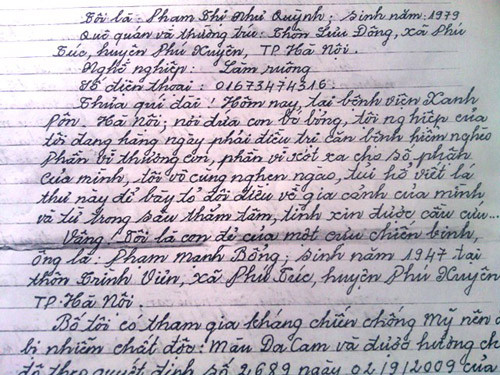 Tôi là: Phạm Thị Như Quỳnh; sinh năm: 1979
Quê quán và thường trú: Thôn Lưu Đông, xã Phú
Túc, huyện Phú Xuyên, TP. Hà Nội.
Nghề nghiệp: Làm ruộng
Số điện thoại: 01673474316
Thưa quí đài! Hôm nay, tại bệnh viện Xanh
Pôn - Hà Nội; nơi đứa con bơ bỏng, tội nghiệp của
tôi đang hàng ngày phải điều trị căn bệnh hiểm nghèo
Phần vì thương con, phần vì xót xa cho số phận
của mình, tôi vô cùng nghẹn ngào, tủi hổ viết lá
thư này để bày tỏ đôi điều về gia cảnh của mình
và từ trong sâu thẳm tâm, tình xin được cầu cứu...
Vâng! Tôi là con đẻ của một cựu chiến binh,
ông là: Phạm Mạnh Bổng; sinh năm 1947 tại
thôn Trình Viên, xã Phú Túc, huyện Phú Xuyên
TP. Hà Nội.
Bố tôi có tham gia kháng chiến chống Mỹ nên
bị nhiễm chất độc: Màu Da Cam và được hưởng
độ theo quyết định số 2.689 ngày 02/9/2009 của